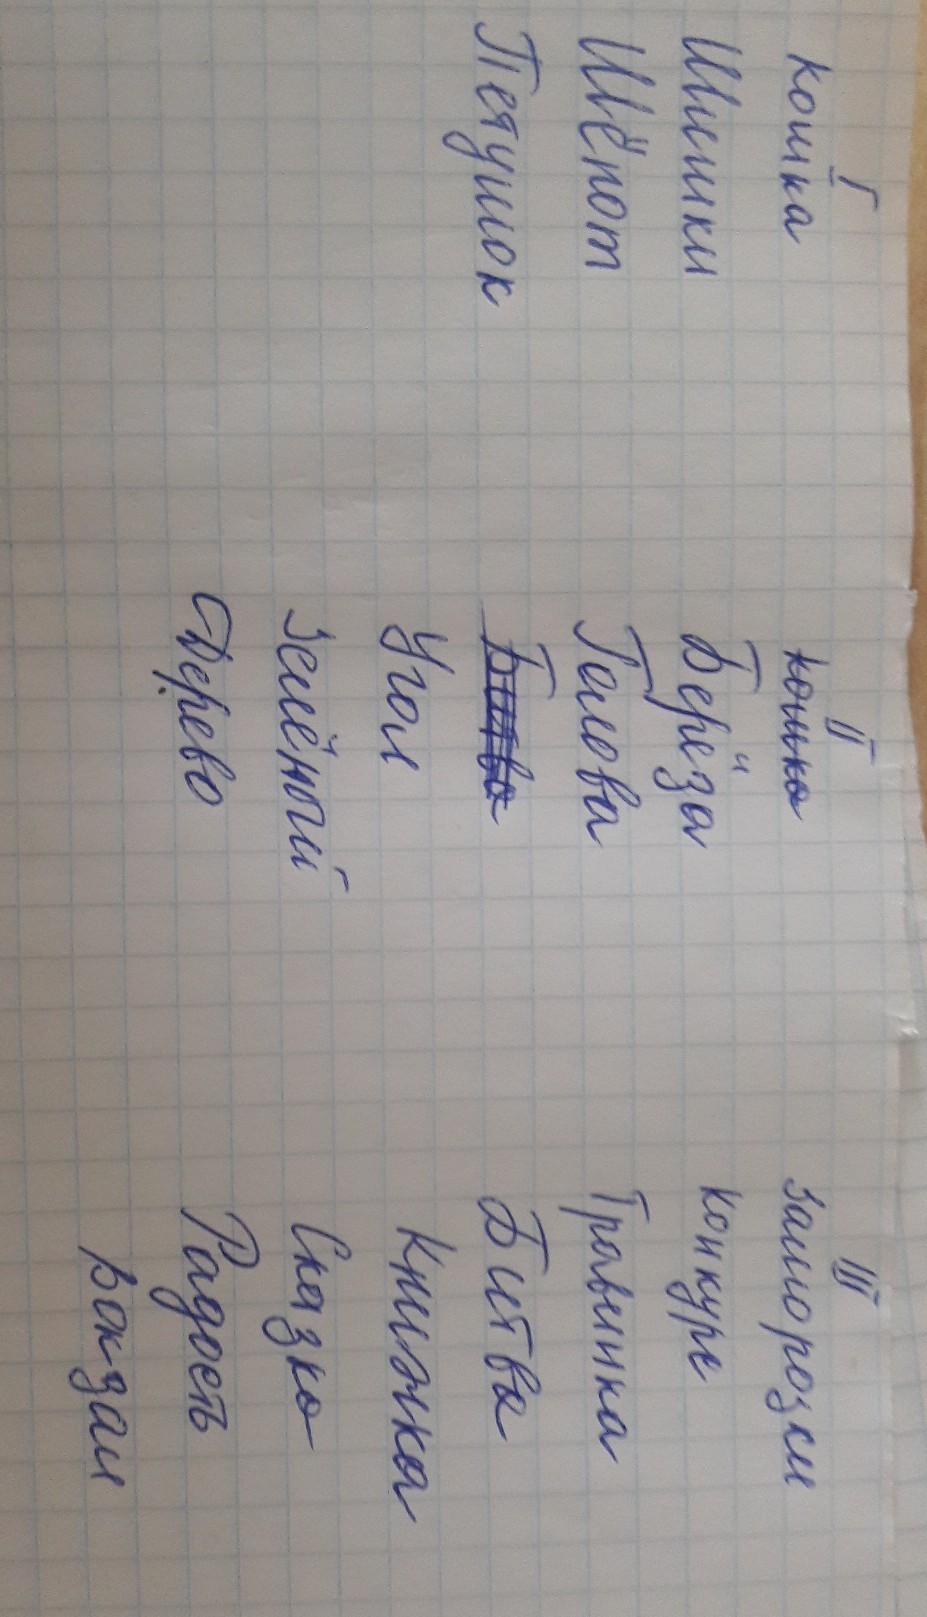 I
кошка
Шишки
Шёпот
Петушок
II
Берёза
Голова
Угол
Зелёный
Дерево
III
Заморозки
Конкурс
Травинка
Битва
Книжка
Сказка
Радость
Вокзал